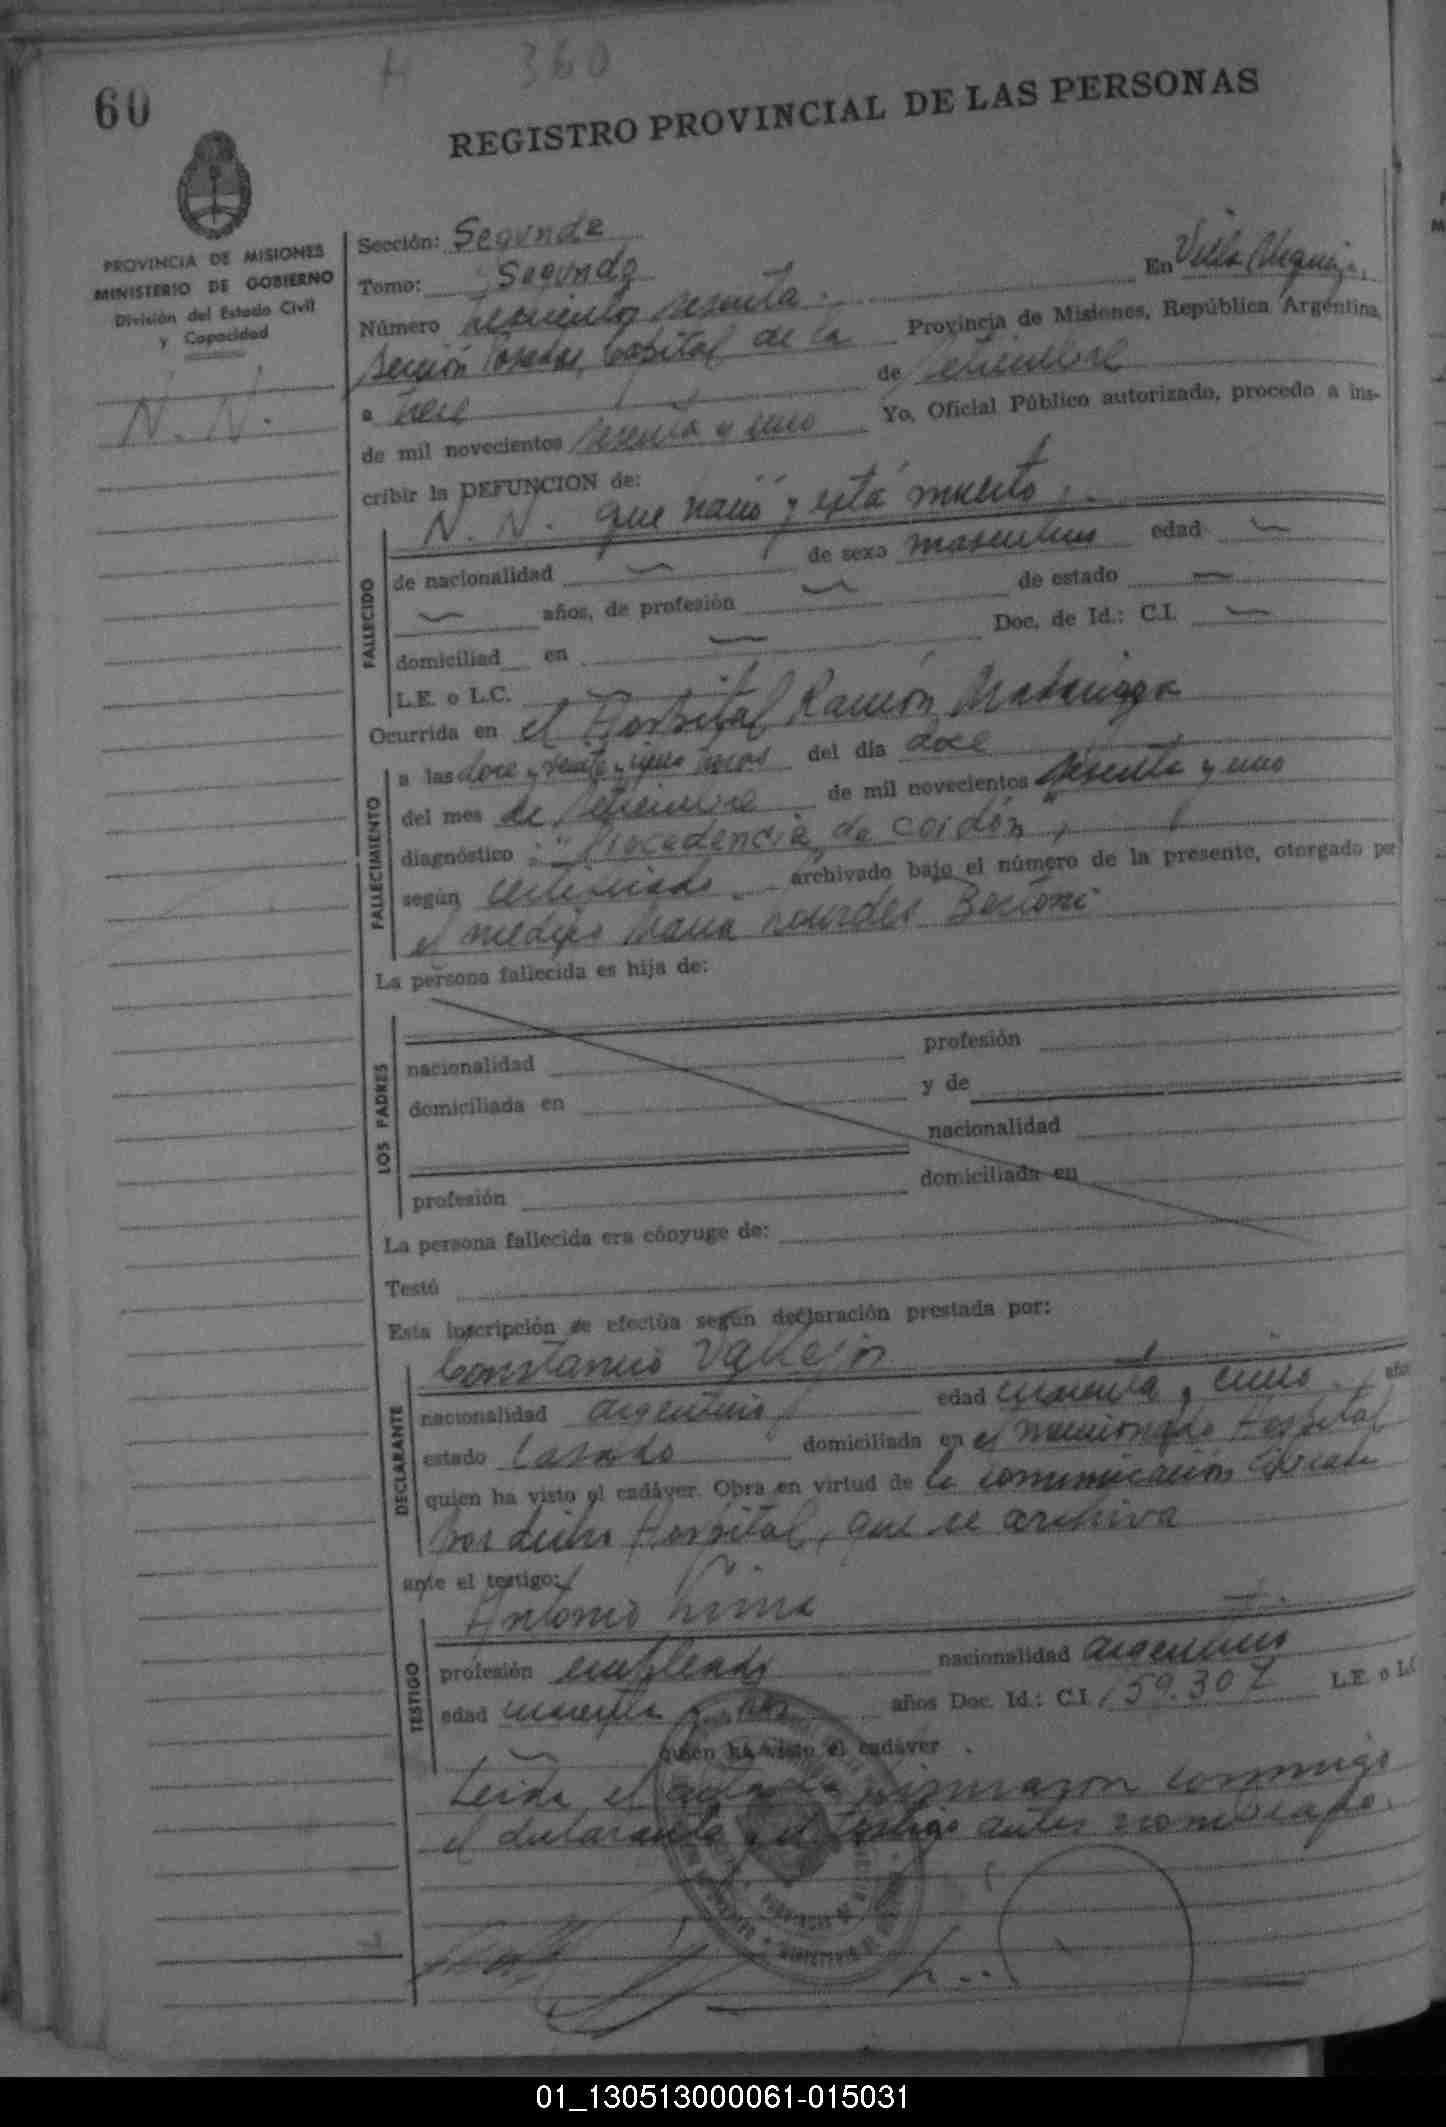 H 360
60
REGISTRO PROVINCIAL DE LAS PERSONAS
PROVINCIA DE MISIONES
MINISTERIO DE GOBIERNO
División del Estado Civil
y Capacidad
N. N.
Sección: Segunda
Tomo: Segundo En Villa Urquiza,
Número trescientos sesenta
sección Posadas, Capital de la Provincia de Misiones, República Argentina,
a trece de setiembre
de mil novecientos sesenta y uno Yo, Oficial Público autorizado, procedo a ins-
cribir la DEFUNCION de:
N. N. que nació y está muerto
FALLECIDO
de nacionalidad de sexo masculino edad
años, de profesión de estado
domiciliad en Doc. de Id.: C.I.
L.E. o L.C.
Ocurrida en el Hospital Ramón Madariaga
FALLECIMIENTO
a las doce y veinte y cinco horas del día doce
del mes de setiembre de mil novecientos sesenta y uno
diagnóstico "Procedencia de cordón",
según certificado archivado bajo el número de la presente, otorgado por
el médico María Lourdes Bertoni
La persona fallecida es hija de:
LOS PADRES
nacionalidad profesión
domiciliada en y de
nacionalidad
profesión domiciliada en
La persona fallecida era cónyuge de:
Testó
Esta inscripción se efectúa según declaración prestada por:
Constancio Vallejos
DECLARANTE
nacionalidad argentino edad cuarenta y cinco años
estado casado domiciliada en el mencionado Hospital
quien ha visto el cadáver. Obra en virtud de la comunicación
por dicho Hospital, que se archiva
ante el testigo:
Antonio
TESTIGO
profesión empleado nacionalidad argentino
edad cuarenta y años Doc. Id.: C.I. 159.307 L.E. o LC
quien ha visto el cadáver.
Leída el acta la firmaron conmigo
el declarante y el testigo antes nombrado.
01_130513000061-015031